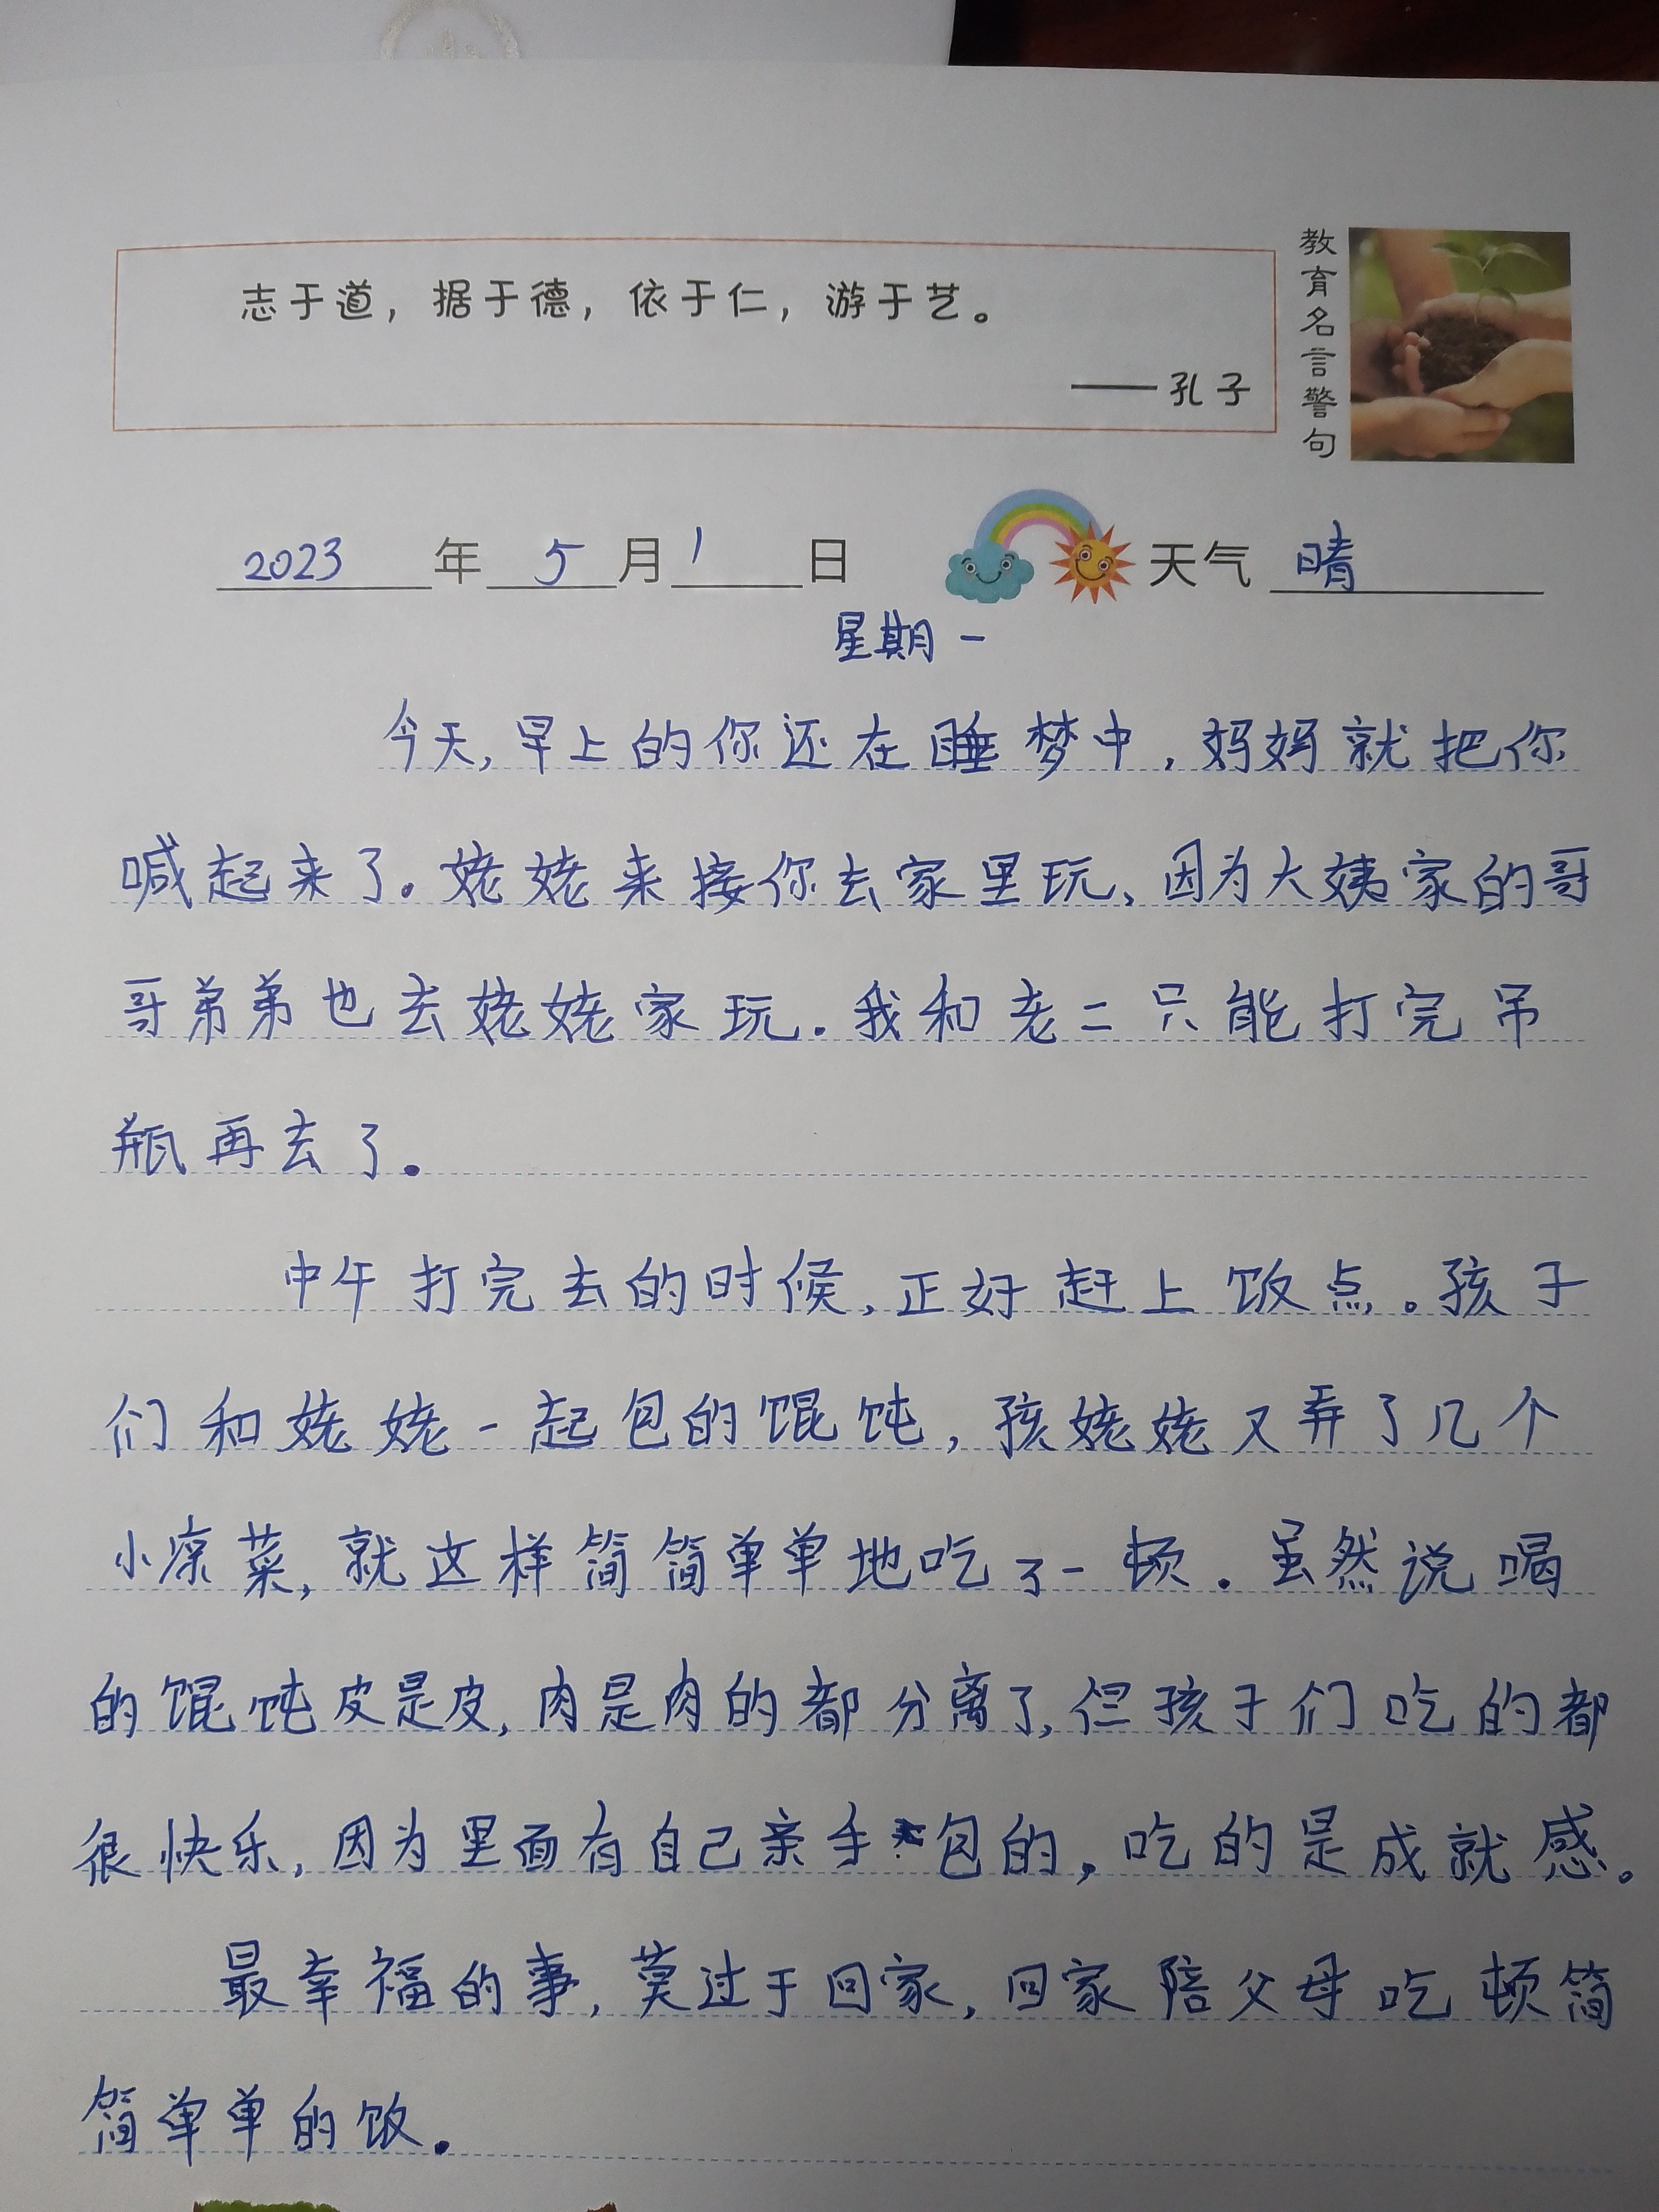 志于道，据于德，依于仁，游于艺。
——孔子
教育名言警句
2023年5月1日 天气 晴
星期一
今天,早上的你还在睡梦中,妈妈就把你
喊起来了。姥姥来接你去家里玩、因为大姨家的哥
哥弟弟也去姥姥家玩.我和老二只能打完吊
瓶再去了。
中午打完去的时候,正好赶上饭点。孩子
们和姥姥一起包的馄饨,孩姥姥又弄了几个
小凉菜,就这样简简单单地吃了一顿.虽然说喝
的馄饨皮是皮,肉是肉的都分离了,但孩子们吃的都
很快乐,因为里面有自己亲手包的,吃的是成就感。
最幸福的事,莫过于回家,回家陪父母吃顿简
简单单的饭.